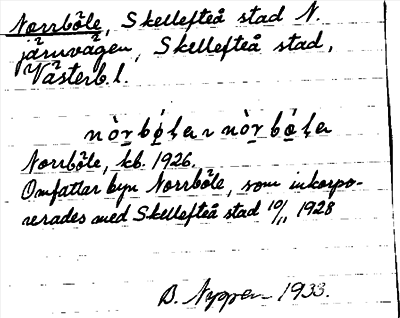 Norrböle, Skellefteå stad N.
järnvägen, Skellefteå stad,
Västerb. l.
Norrböle, kb. 1926.
Omfattar byn Norrböle, som inkorpo-
rerades med Skellefteå stad 10/11 1928
B. 1933.